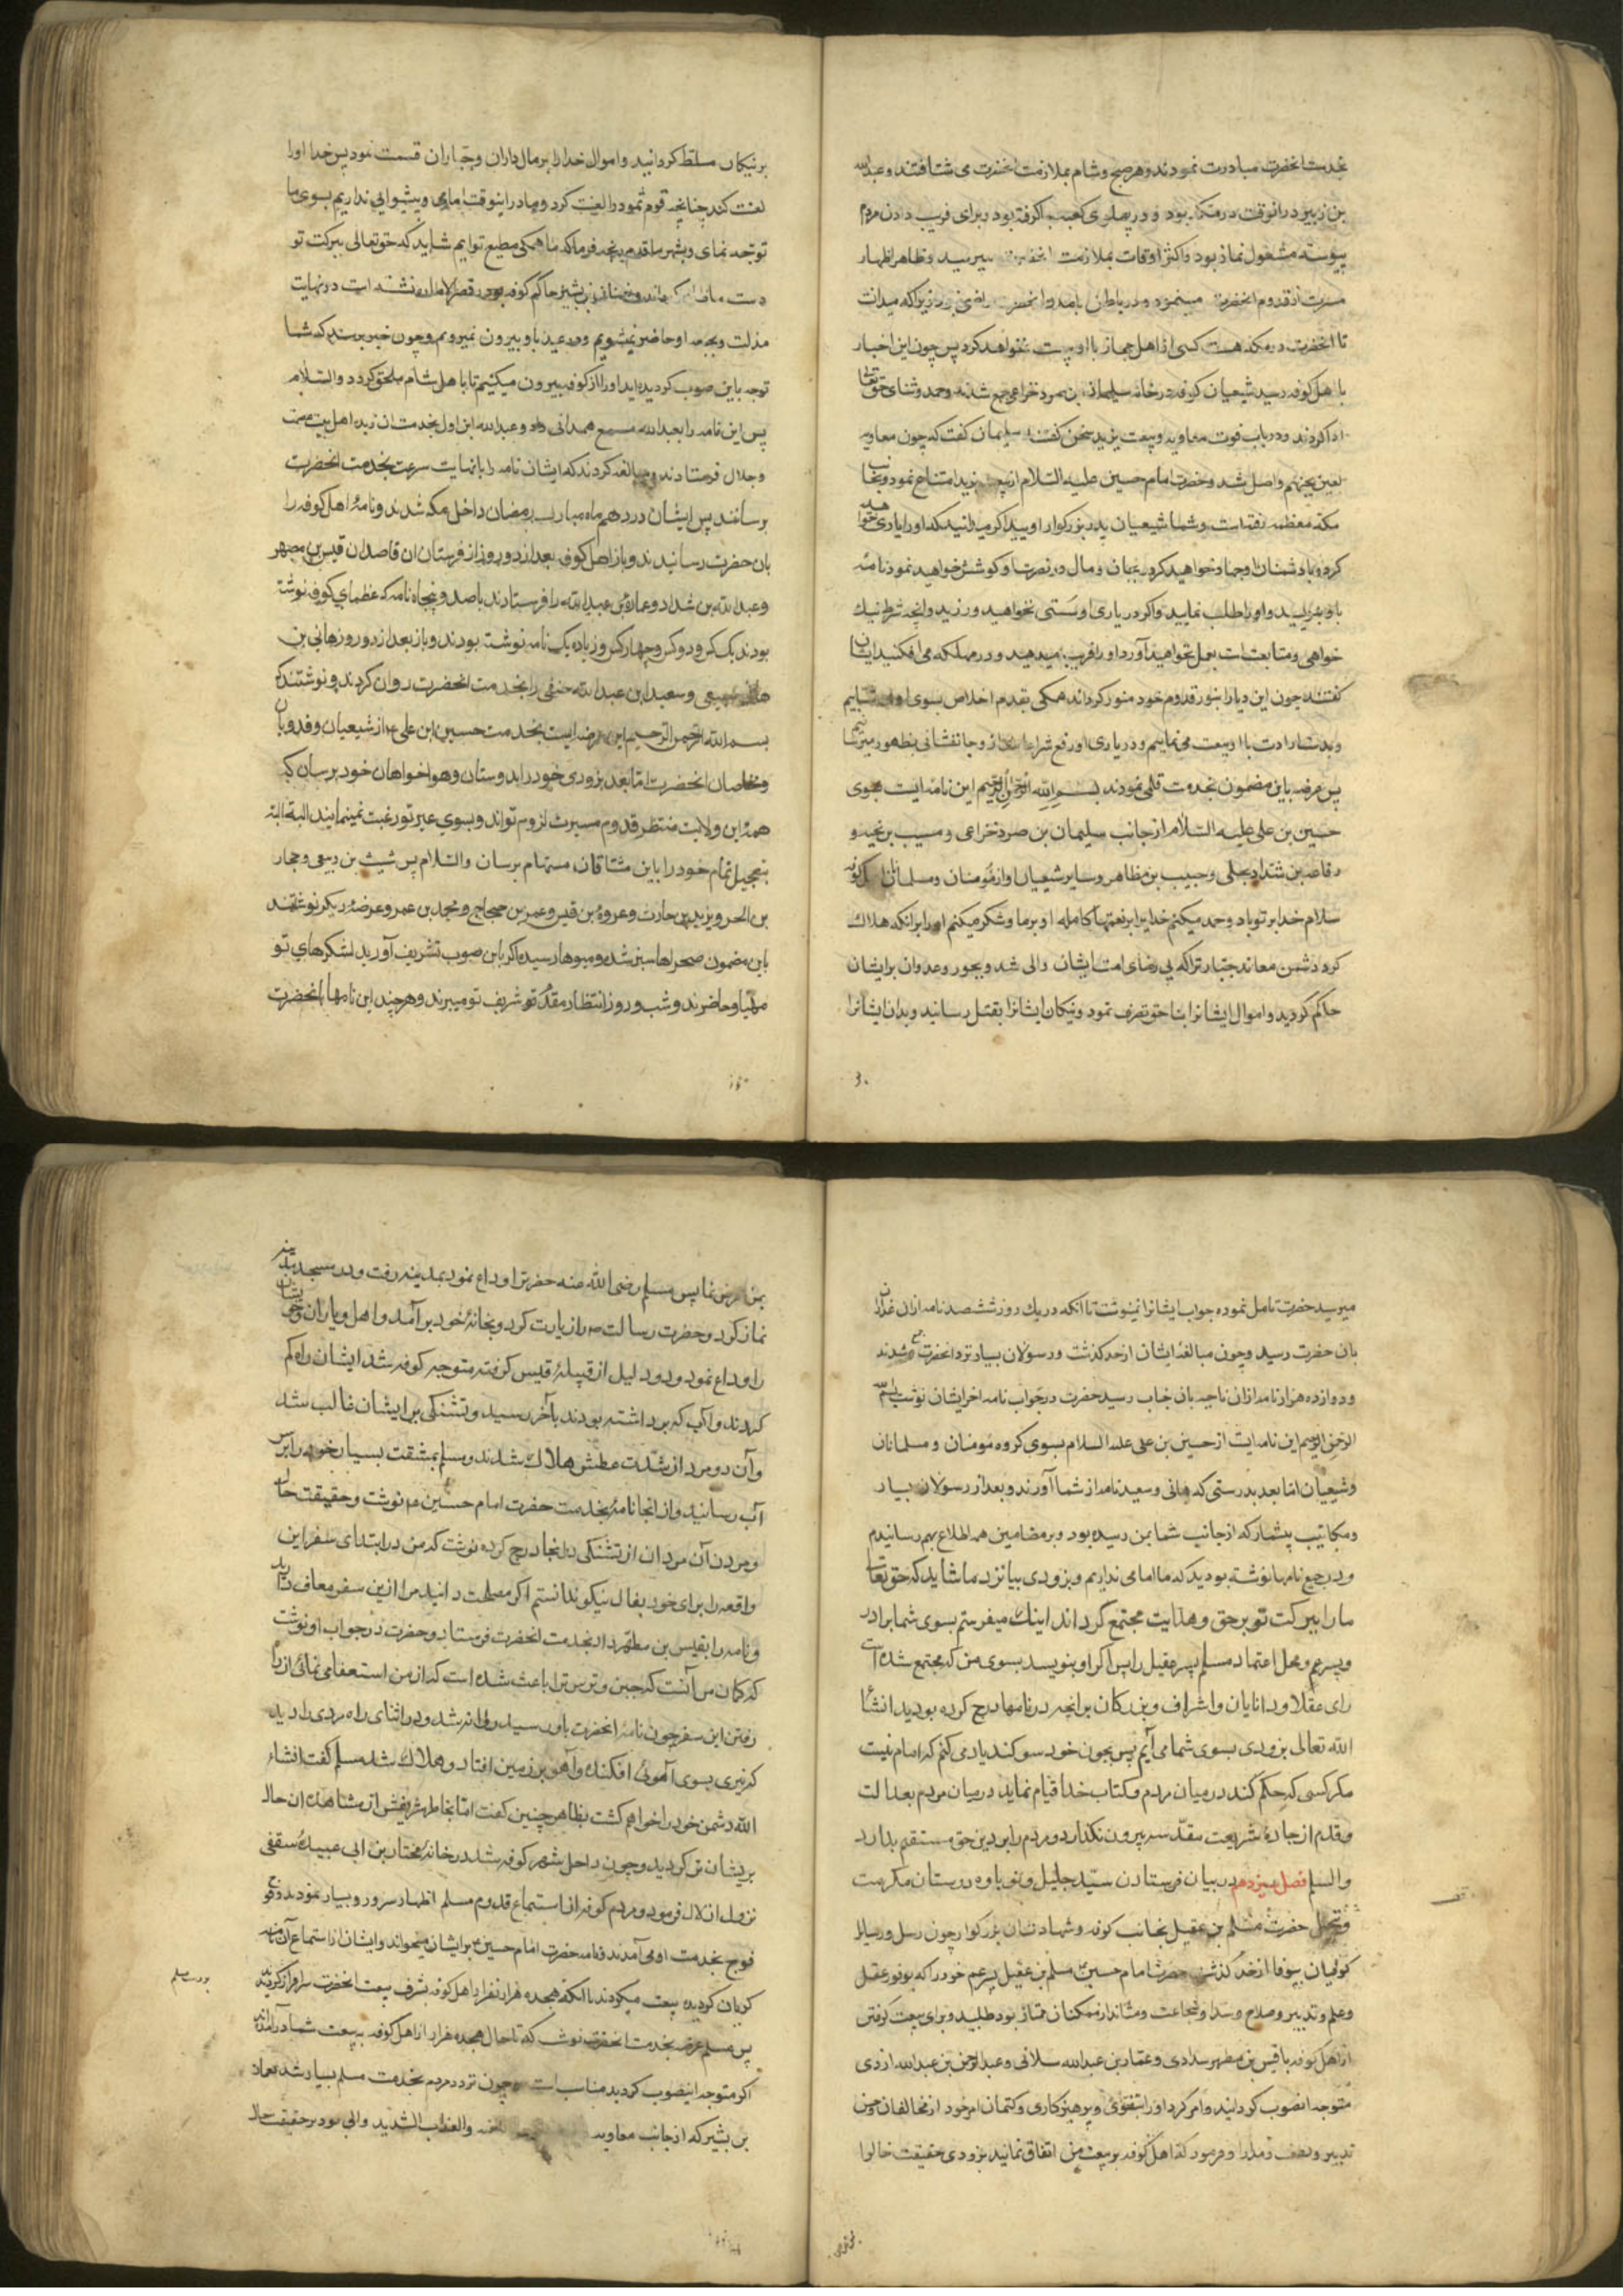 بخدمت انحضرت مبادرت نمودند و هر صبح و شام بملازمت انحضرت می شتافتند و عبدالله
بن زبیر در انوقت در مکه بود و در پهلوی کعبه جا گرفته بود و برای فریب دادن مردم
پیوسته مشغول نماز بود و اکثر اوقات بملازمت انحضرت میرسید و ظاهر اظهار
مسرت از قدوم انحضرت مینمود و در باطن بامدن انحضرت راضی نبود زیرا که میدانت
تا انحضرت در مکه هست کسی از اهل حجاز با او بیعت نخواهد کرد پس چون این اخبار
باهل کوفه رسید شیعیان کوفه در خانه سلیمان بن صرد خزاعی جمع شدند و حمد و ثنای حقتعالی
ادا کردند و در باب فوت معاویه و بیعت یزید سخن گفتند سلیمان گفت که چون معاویه
لعین بجهنم واصل شد و حضرت امام حسین علیه السلام از بیعت یزید امتناع نمود و بجانب
مکه معظمه رفته است و شما شیعیان پدر بزرگوار اویید اگر میدانید که او را یاری خواهید
کرد و با دشمنان او جهاد خواهید کرد بجان و مال در نصرت او کوشش خواهید نمود نامه
باو بنویسید و او را طلب نمایید و اگر در یاری او سستی خواهید ورزید و انچه شرط نیک
خواهی و متابعت است بعمل نخواهید آورد او را فریب میدهید و در مهلکه می افکنید ایشان
گفتند چون این دیار را بنور قدوم خود منور گرداند همگی بقدم اخلاص بسوی او می شتابیم
و بدست ارادت با او بیعت می نماییم و در یاری او رفع شر اعدا از و جانفشانی بظهور میرسانیم
پس عرضه باین مضمون بخدمت قلمی نمودند بسم الله الرحمن الرحیم این نامه ایست بسوی
حسین بن علی علیه السلام از جانب سلیمان بن صرد خزاعی و مسیب بن نجبه و
رفاعه بن شداد بجلی و حبیب بن مظاهر و سایر شیعیان او از مؤمنان و مسلمانان اهل کوفه
سلام خدا بر تو باد و حمد میکنم خدایرا بر نعمتهای کامله او بر ما و شکر میکنم او را برانکه هلاک
کرد دشمن معاند جبار ترا که بی رضای امت ایشان والی شد و بجور و عدوان بر ایشان
حاکم گردید و اموال ایشانرا بناحق تصرف نمود و نیکان ایشانرا بقتل رسانید و بدان ایشانرا
بر نیکان مسلط گردانید و اموال خدا را بر مال داران و جباران قسمت نمود پس خدا او را
لعنت کند چنانچه قوم ثمود را لعنت کرد و ما در اینوقت امامی و پیشوایی نداریم بسوی ما
توجه نمای و بشهر ما قدم رنجه فرما که ما همگی مطیع توایم شاید که حقتعالی ببرکت تو
و نعمان بن بشیر حاکم کوفه در قصر الاماره نشسته است در نهایت
مذلت و بجمعه او حاضر نمیشویم و در عید با او بیرون نمیرویم و چون خبر برسد که شما
توجه باین صوب گردیده اید او را از کوفه بیرون میکنیم تا باهل شام ملحق گردد والسلام
پس این نامه را بعبدالله مسمع همدانی داد و عبدالله ابن اول بخدمت ان زبده اهل بیت عصمت
و جلال فرستادند و مبالغه کردند که ایشان نامه را بانهایت سرعت بخدمت انحضرت
برسانند پس ایشان در دهم ماه مبارک رمضان داخل مکه شدند و نامهٔ اهل کوفه را
بان حضرت رسانیدند و باز اهل کوفه بعد از دو روز از فرستان ان قاصدان قیس بن مصهر
و عبدالله بن شداد و عمارة بن عبدالله را فرستادند با صد و پنجاه نامه که عظمای کوفه نوشته
بودند یک کس و دو کس و چهار کس و زیاده یک نامه نوشته بودند و باز بعد از دو روز هانی بن
هانی سبیعی و سعید ابن عبدالله حنفی را بخدمت انحضرت روان کردند و نوشتند که
بسم الله الرحمن الرحیم این عرضه ایست بخدمت حسین ابن علی ع از شیعیان و فدویان
و مخلصان انحضرت اما بعد بزودی خود را بدوستان و هواخواهان خود برسان که
همهٔ این ولایت منتظر قدوم مسرت لزوم تواند و بسوی غیر تو رغبت نمینمایند البته البته
بتعجیل تمام خود را باین مشتاقان مستهام برسان والسلام پس شیث بن ربعی و حجار
بن الحر و یزید بن حارث و عروهٔ بن قیس و عمر بن حجاج و محمد بن عمر و عرضهٔ دیگر نوشتند
باین مضمون صحراها سبز شده و میوها رسیده اگر باین صوب تشریف آورید لشکرهای تو
مهیا و حاضرند و شب و روز انتظار مقدم شریف تو میبرند و هر چند این نامها بانحضرت
میرسید حضرت تامل نموده جواب ایشانرا نمینوشت تا انکه در یک روز ششصد نامه ازان غداران
بان حضرت رسید و چون مبالغهٔ ایشان از حد گذشت و رسولان بسیار نزد انحضرت جمع شدند
و دوازده هزار نامه ازان ناحیه بان جناب رسید حضرت در جواب نامه اخر ایشان نوشت بسم الله
الرحمن الرحیم این نامه ایت از حسین بن علی علیه السلام بسوی کروه مومنان و مسلمانان
و شیعیان اما بعد بدرستی که هانی و سعید نامه از شما آورند و بعد از رسولان بسیار
و مکاتیب بیشمار که از جانب شما بمن رسیده بود و بر مضامین همه اطلاع بهم رسانیدم
و در جمیع نامها نوشته بودید که ما امامی نداریم و بزودی بیا نزد ما شاید که حق تعالی
ما را ببرکت تو بر حق و هدایت مجتمع گرداند اینک میفرستم بسوی شما برادر
و پسر عم و محل اعتماد مسلم پسر عقیل را پس اگر او بنویسد بسوی من که مجتمع شده است
رای عقلا و دانایان و اشراف و بزرکان بر انچه در نامها درج کرده بودید انشا
الله تعالی بزودی بسوی شما می آیم پس بجون خود سوکند یاد می کنم که امام نیست
مکر کسی که حکم کند در میان مردم و کتاب خدا قیام نماید در میان مردم بعدالت
و قدم از جادهٔ شریعت مقدسه بیرون نگذارد و مردم را بر دین حق مستقیم بدارد
والسلم فصل سیزدهم در بیان فرستادن سید جلیل و نوباوه دودستان مکرمت
و تبجیل حضرت مسلم بن عقیل بجانب کوفه و شهادت ان بزرگوار چون رسل و رسایل
کوفیان بیوفا از حد گذشت حضرت امام حسین مسلم بن عقیل پسر عم خود را که بوفور عقل
و علم و تدبیر و صلاح و سداد و شجاعت و ممتاز بود طلبید و برای بیعت گرفتن
از اهل کوفه با قیس بن مصهر سیدادی و عمار بن عبدالله سلانی و عبدالرحمن بن عبدالله ازدی
متوجه انصوب گردانید و امر کرد او را بتقوی و پرهیزکاری و کتمان امر خود از مخالفان و حسن
تدبیر و لطف و مدارا و فرمود که اهل کوفه بر بیعت من اتفاق نمایند بزودی حقیقت حال را
بمن عرض نما پس مسلم رضی الله عنه حضرترا وداع نمود بمدینه رفت و در مسجد مدینه
نماز کرد و حضرت رسالت ص را زیارت کرد و بخانهٔ خود برآمد و اهل و یاران و خویشان
را وداع نمود و دو دلیل از قبیلهٔ قیس گرفته متوجه کوفه شد ایشان راه کم
کردند و آب که برداشته بودند بآخر رسید و تشنکی بر ایشان غالب شد
و آن دو مرد از شدت عطش هلاک شدند و مسلم بمشقت بسیار خود را بر سر
آب رسانید و از انجا نامهٔ بخدمت حضرت امام حسین ع نوشت و حقیقت حال
و مردن آن مردان از تشنکی در انجا درج کرده نوشت که من در ابتدای سفر این
واقعه را برای خود بفال نیکو ندانستم اگر مصلحت دانید مرا ازین سفر معاف دارید
و نامه را بقیس بن مطهر داد بخدمت انحضرت فرستاد و حضرت در جواب او نوشت
که کمان من آنست که جبن و ترس ترا باعث شده است که از من استعفا می نمائی از برای
رفتن این سفر چون نامهٔ انحضرت باو رسید روانه شد و در اثنای راه مردی را دید
که تیری بسوی آهوئی افکند و آهو بر زمین افتاد و هلاک شد مسلم گفت انشاء
الله دشمن خود را خواهم کشت بظاهر چنین کفت اما بخاطر شریفش از مشاهده ان حال
پریشان تر گردید و چون داخل شهر کوفه شد در خانهٔ مختار بن ابی عبیدهٔ سقفی
نزول انلال فرمود و مردم کوفه از استماع قدوم مسلم اظهار سرور و بسیار نمودند و فوج
فوج بخدمت او می آمدند و نامه حضرت امام حسین بر ایشان میخواند و ایشان از استماع آن نامه
کریان گردیده بیعت میکردند تا انکه هجده هزار نفر از اهل کوفه بشرف بیعت انحضرت سرافراز گردیدند
پس مسلم عرضه بخدمت انحضرت نوشت که تا حال هجده هزار از اهل کوفه به بیعت شما در آمدند
اگر متوجه اینصوب گردید مناسب است چون تردد مردم بخدمت مسلم بسیار شد نعمان
بن بشیر که از جانب معاویه والعذاب الشدید والی بود بر حقیقت حال